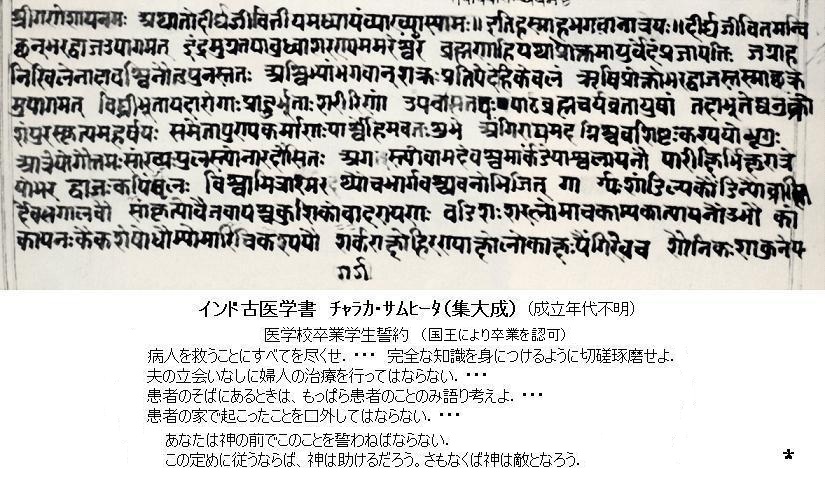 श्रीगणेशायनमः अथातोदीर्घंजीवितीयमध्यायंव्याख्यास्यामः॥ इतिहस्माहभगवानात्रेयः॥ दीर्घंजीवितमन्वि
छनभरद्वाजउपागमत् इंद्रमुग्रतपाबुध्वाशरण्यममरेश्वरं ब्रह्मणाहियथाप्रोक्तमायुर्वेदंप्रजापतिः जग्राह
निखिलेनादावश्विनौतुपुनस्ततः अश्विभ्यांभगवान्शक्रःप्रतिपेदेहिकेवलं ऋषिप्रोक्तोभरद्वाजस्तस्माछक्र
मुपागमत् विघ्नीभूतायदारोगाःप्रादुर्भूताःशरीरिणां उपवासतपःपाठब्रह्मचर्यव्रतायुषां तदाभूतेष्वनुक्रो
शंपुरस्कृत्यमहर्षयः समेतापुण्यकर्माणःपार्श्वेहिमवतःशुभे अंगिराजमदग्निश्चवशिष्टःकश्यपोभृगुः
आत्रेयोगौतमःसांख्यःपुलस्त्योनारदोसितः अगस्त्योवामदेवश्चमार्कंडेयाश्वलायनौ पारीक्षिर्भिक्षुरात्रे
योभरद्वाजःकपिंजलः विश्वामित्राश्मरथ्योचभार्गवश्च्यवनोभिजित् गार्ग्यःशांडिल्यकौंडिन्यौ
देवलगालवौ सांकृत्योवैजवापश्चकुशिकोबादरायणः बडिशःशरलोमाचकाप्यकात्यायनौउभौ कां
कायनःकैकशेयोधौम्योमारिचिकश्यपौ शर्कराक्षोहिरण्याक्षोलोकाक्षःपैंगिरेवच शौनिकःशाकुनेय
गर्ग
インド古医学書 ﾁｬﾗｶ･ｻﾑﾋｰﾀ(集大成) (成立年代不明)
医学校卒業学生誓約 (国王により卒業を認可)
病人を救うことにすべてを尽くせ．･･･ 完全な知識を身につけるように切磋琢磨せよ．
夫の立会いなしに婦人の治療を行ってはならない．･･･
患者のそばにあるときは、もっぱら患者のことのみ語り考えよ．･･･
患者の家で起こったことを口外してはならない．･･･
あなたは神の前でこのことを誓わねばならない．
この定めに従うならば、神は助けるだろう。さもなくば神は敵となろう．
*